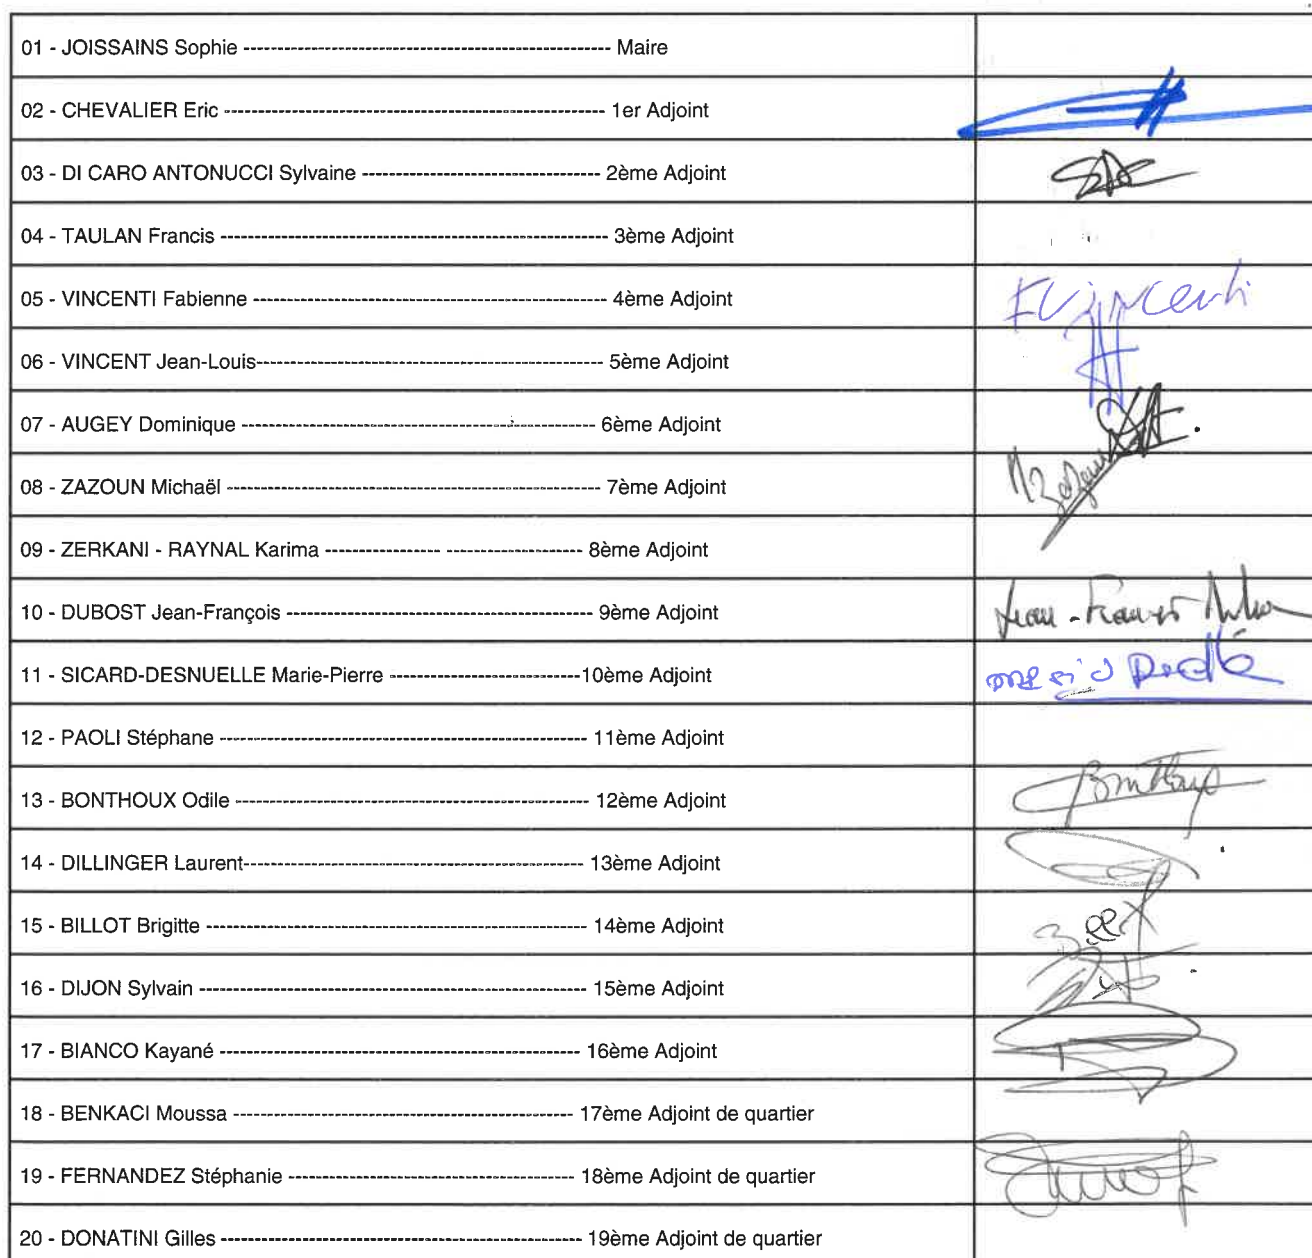 01 - JOISSAINS Sophie ----------------------------------------------------- Maire
02 - CHEVALIER Eric ------------------------------------------------------- 1er Adjoint
03 - DI CARO ANTONUCCI Sylvaine ---------------------------------- 2ème Adjoint
04 - TAULAN Francis -------------------------------------------------------- 3ème Adjoint
05 - VINCENTI Fabienne --------------------------------------------------- 4ème Adjoint
F Vincenti
06 - VINCENT Jean-Louis-------------------------------------------------- 5ème Adjoint
07 - AUGEY Dominique --------------------------------------------------- 6ème Adjoint
08 - ZAZOUN Michaël ------------------------------------------------------ 7ème Adjoint
09 - ZERKANI - RAYNAL Karima ---------------- ------------------- 8ème Adjoint
10 - DUBOST Jean-François -------------------------------------------- 9ème Adjoint
Jean-François
11 - SICARD-DESNUELLE Marie-Pierre ---------------------------10ème Adjoint
12 - PAOLI Stéphane ----------------------------------------------------- 11ème Adjoint
13 - BONTHOUX Odile --------------------------------------------------- 12ème Adjoint
Bonthoux
14 - DILLINGER Laurent------------------------------------------------- 13ème Adjoint
15 - BILLOT Brigitte ------------------------------------------------------- 14ème Adjoint
16 - DIJON Sylvain -------------------------------------------------------- 15ème Adjoint
17 - BIANCO Kayané ---------------------------------------------------- 16ème Adjoint
18 - BENKACI Moussa ------------------------------------------------- 17ème Adjoint de quartier
19 - FERNANDEZ Stéphanie ----------------------------------------- 18ème Adjoint de quartier
20 - DONATINI Gilles ---------------------------------------------------- 19ème Adjoint de quartier